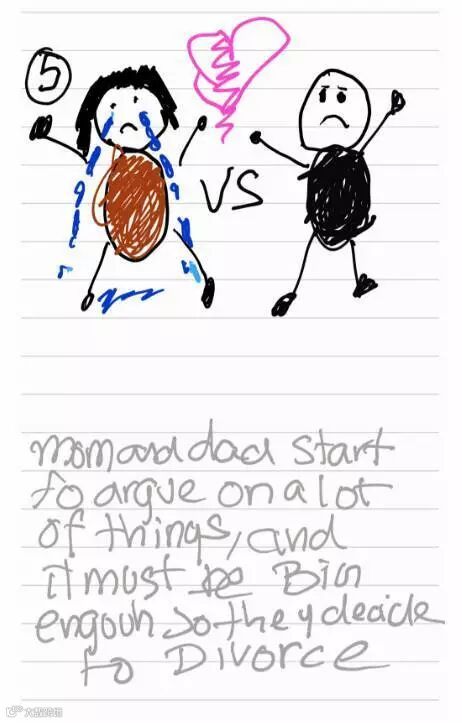 5
VS
mom and dad start
to argue on a lot
of things, and
it must be Big
engouh so they decide
to Divorce